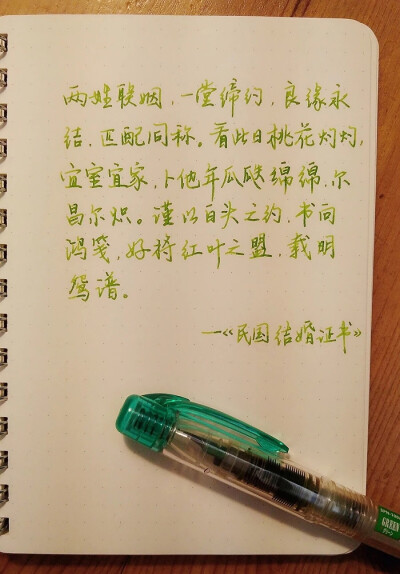 两姓联姻，一堂缔约，良缘永
结，匹配同称。看此日桃花灼灼，
宜室宜家，卜他年瓜瓞绵绵，尔
昌尔炽。谨以白头之约，书向
鸿笺，好将红叶之盟，载明
鸳谱。
—《民国结婚证书》
GREEN